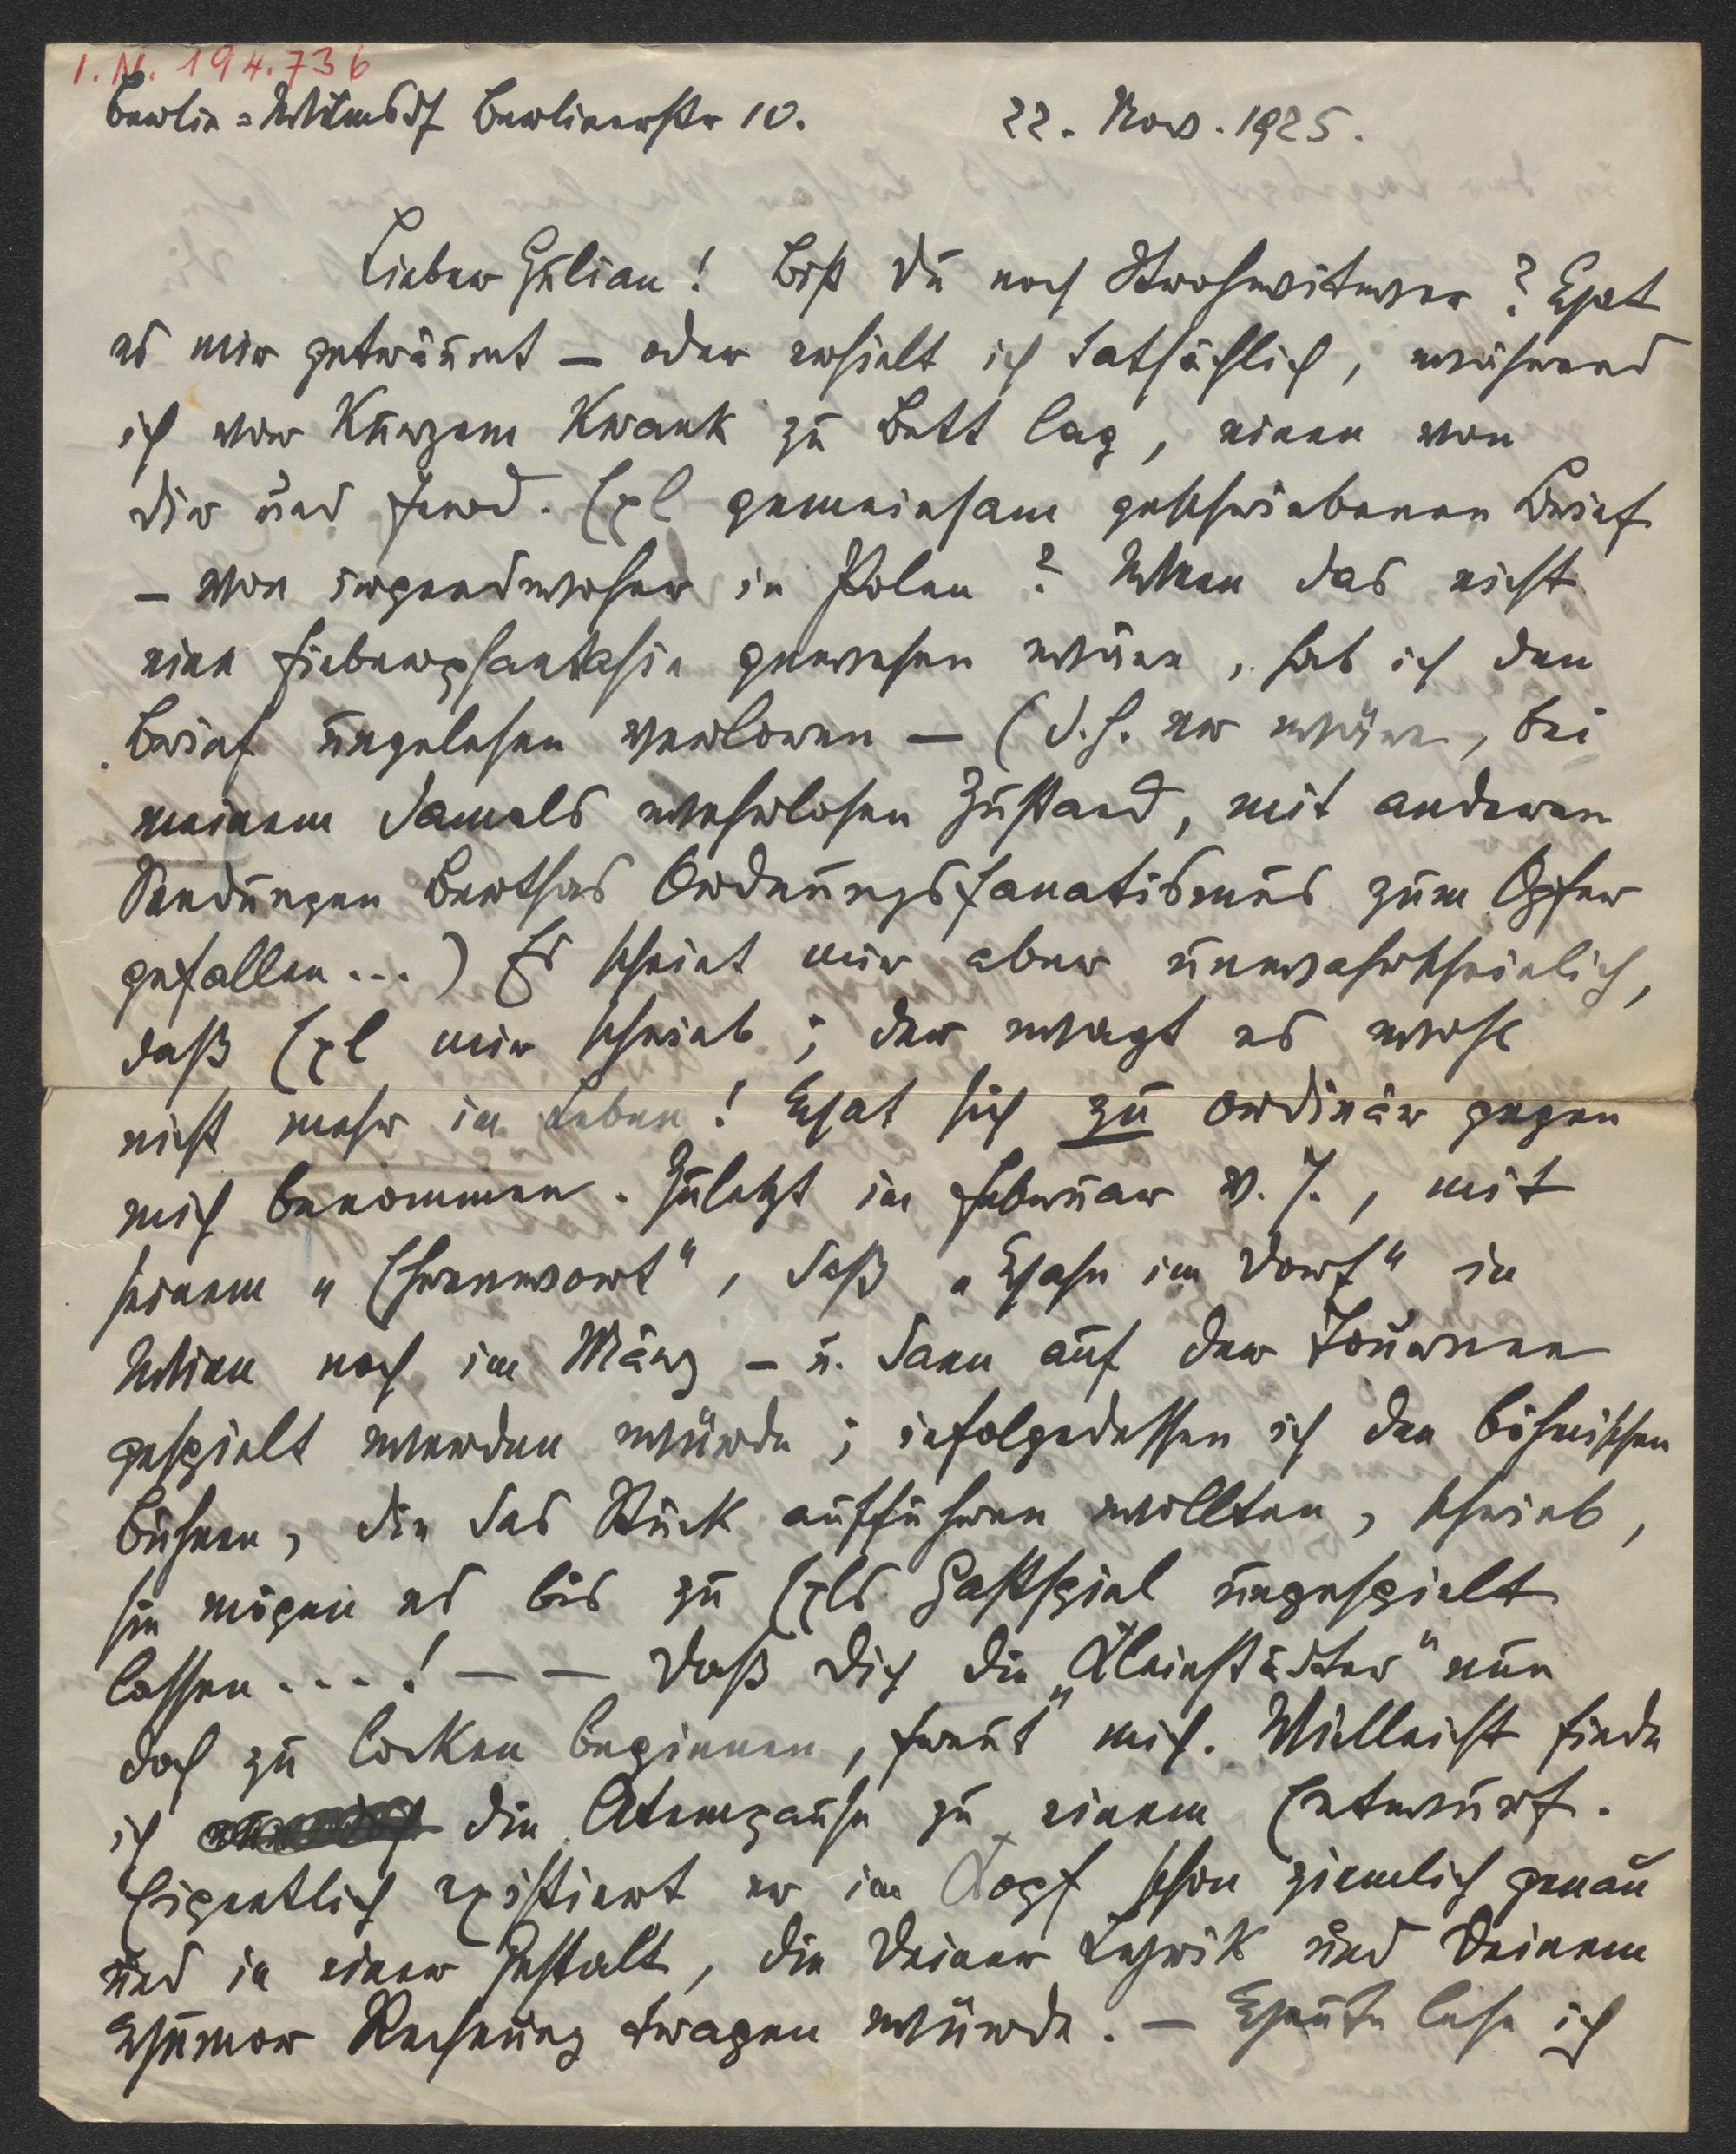 I.N. 194.736
Berlin=Wilmsdf Berlinerstr 10. 22. Nov. 1925.
Lieber Julian! Bist Du noch Strohwitwer? Hat
es mir geträumt – oder erhielt ich tatsächlich, während
ich vor Kurzem krank zu Bett lag, einen von
Dir und Ferd. Exl gemeinsam geschriebenen Brief
– von irgendwoher in Polen? Wenn das nicht
eine Fieberphantasie gewesen wäre, hab ich den
Brief ungelesen verloren – (d.h. er wäre, bei
meinem damals wehrlosen Zustand, mit anderen
Sendungen Berthas Ordnungsfanatismus zum Opfer
gefallen...) Es scheint mir aber unwahrscheinlich,
daß Exl mir schrieb; der wagt es wohl
nicht mehr im Leben! Hat sich zu ordinär gegen
mich benommen. Zuletzt im Februar v. J., mit
seinem "Ehrenwort", daß "Hahn im Dorf" in
Wien noch im März – u. dann auf der Tournee
gespielt werden würde; infolgedessen ich den böhmischen
Bühnen, die das Stück aufführen wollten, schrieb,
sie mögen es bis zu Exls Gastspiel ungespielt
lassen....! – – Daß Dich die "Kleinstädter" nun
doch zu locken beginnen, freut mich. Vielleicht finde
ich die Atempause zu einem Entwurf.
Eigentlich existiert er im Kopf schon ziemlich genau
und in einer Gestalt, die Deiner Lyrik und Deinem
Humor Rechnung tragen würde. – Heute lese ich